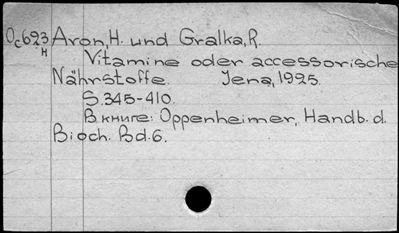 Oc623 Aron, H. und Gralka, R.
H
Vitamine oder accessorische
Nährstoffe. Jena, 1925.
S. 345-410.
В книге: Oppenheimer, Handb. d.
Bioch. Bd. 6.